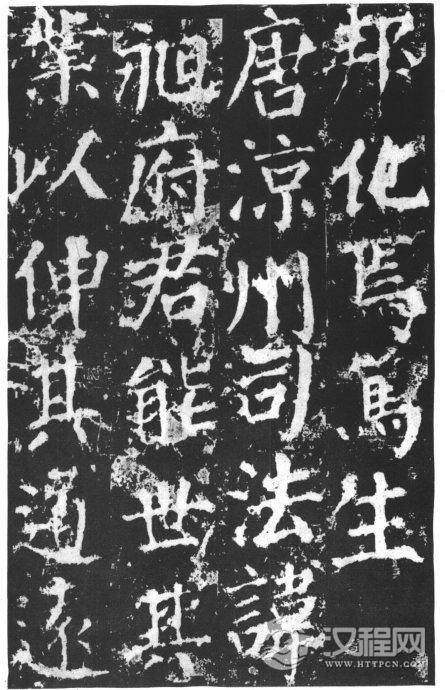 邦化焉舄生
唐涼州司法諱
昶府君能世其
業以伸其通遠
汉程网
WWW.HTTPCN.COM